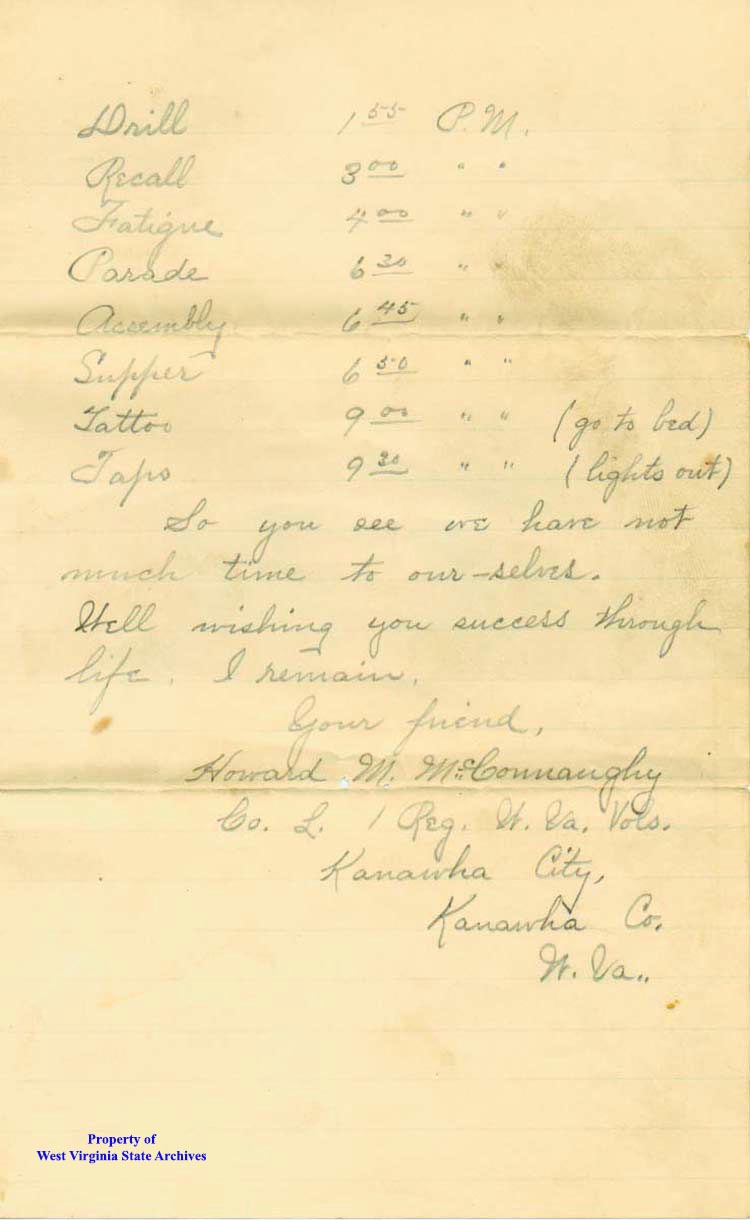 Drill 1 55 P.M.
Recall 3 00 " "
Fatigue 4 00 " "
Parade 6 30 "
Assembly 6 45 " "
Supper 6 50 " "
Tattoo 9 00 " " (go to bed)
Taps 9 30 " " (lights out)
So you see we have not
much time to our-selves.
Well wishing you success through
life. I remain,
Your friend,
Howard M. McConnaughy
Co. L. 1 Reg. W. Va. Vols.
Kanawha City,
Kanawha Co.
W. Va..
Property of
West Virginia State Archives